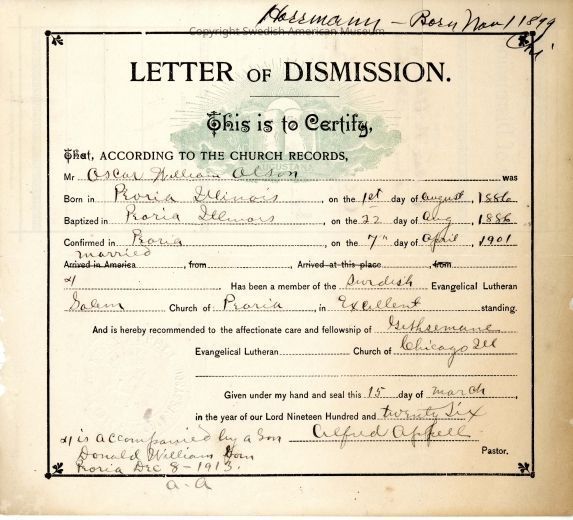 Herrmann - Born Nov 1 1899
Copyright Swedish American Museum
LETTER OF DISMISSION.
This is to Certify,
That, ACCORDING TO THE CHURCH RECORDS,
Mr Oscar William Olson was
Born in Peoria Illinois, on the 1st day of August, 1886
Baptized in Peoria Illinois, on the 22 day of Aug, 1886
Confirmed in Peoria, on the 7th day of April, 1901
married
Arrived in America, from Arrived at this place, from
Has been a member of the Swedish Evangelical Lutheran
Salem Church of Peoria, in Excellent standing.
And is hereby recommended to the affectionate care and fellowship of Gethsemane
Evangelical Lutheran Church of Chicago Ill
Given under my hand and seal this 15 day of March,
in the year of our Lord Nineteen Hundred and twenty six
is accompanied by a son Alfred Appell
Donald William Born Pastor.
Peoria Dec 8-1913.
a-a